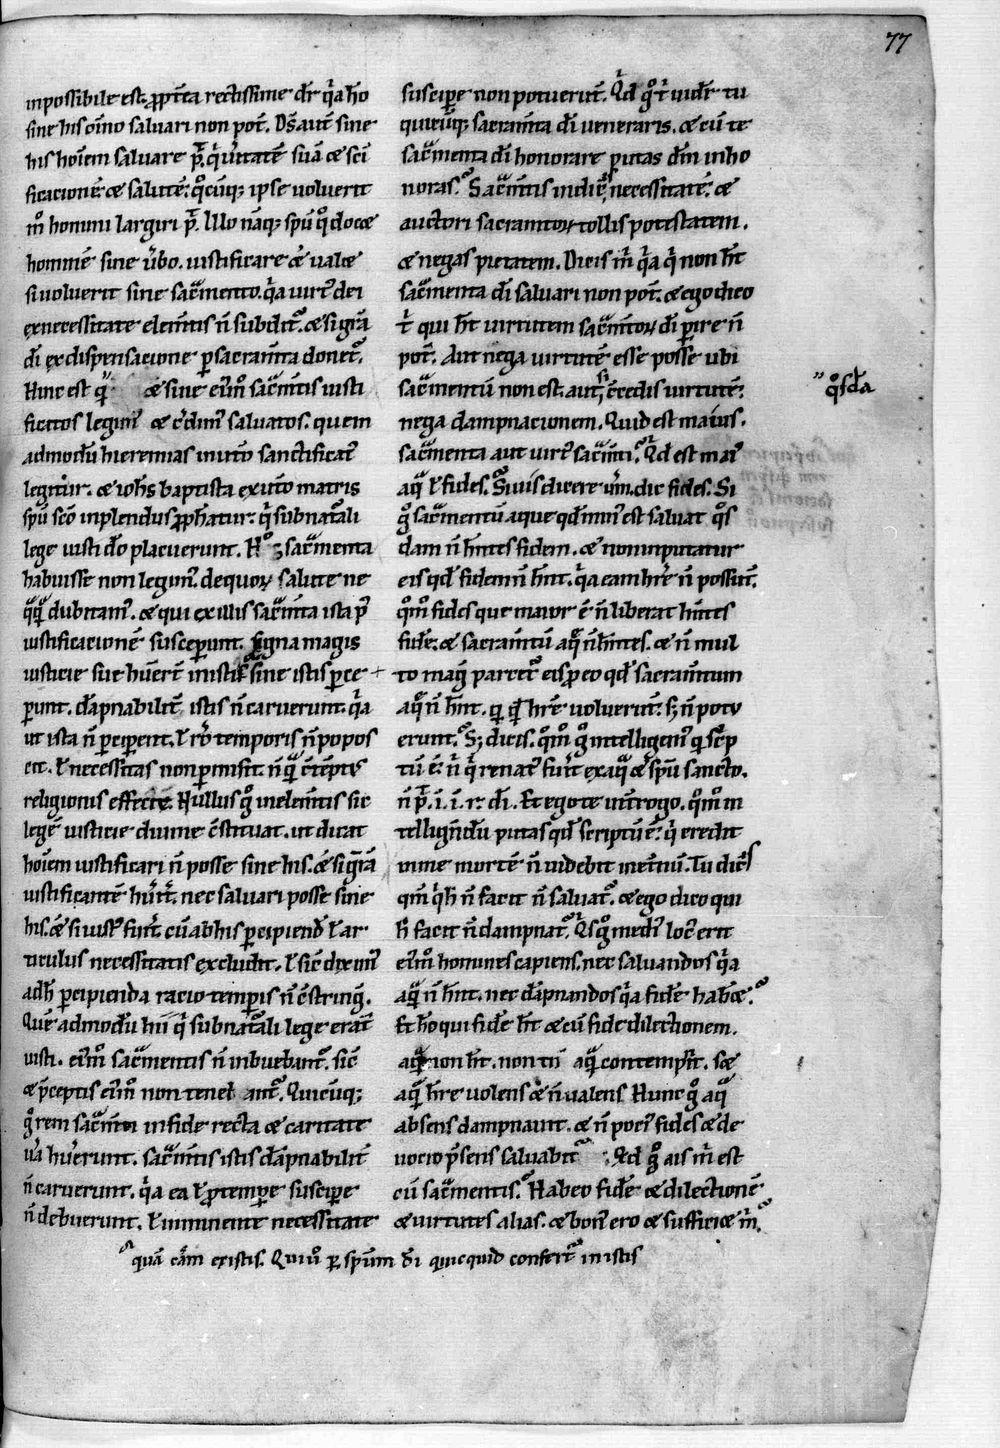 77
inpossibile est. ꝓpt̄ea rectissime dr̄ qͥa hō
sine his oīno saluari non pot̄. Ds̄ aut̄ sine
his hoīem saluare p̄t. qͥ uirtutē suā ⁊ sc̄i
ficacionē ⁊ salutē. qͦcūqꝫ ipse uoluerit
mͦ homini largiri p̄t. Illo nāqꝫ sp̄u qͦ docet
hominē sine u̇bo. iustificare ⁊̄ ualet
si uoluerit sine sac̄mento. qͥa uirtꝰ dei
ex necessitate elem̄tis n̄ subditᷣ. ⁊ si gr̄a
dī ex dispensacione ꝑ sacram̄ta donetᷣ.
Hinc est qͩ ⁊ sine eiꝰmͦ sac̄m̄tis iusti
ficatos legimꝰ ⁊ c̄dimꝰ saluatos. quem
admodū hieremias in ut̄o sanctificatꝰ
legitur. ⁊ ioh̄s baptista ex ut̄o matris
sp̄u sc̄o inplendus ꝓph̄atur. qͥ sub nat̄ali
lege iusti dō placuerunt. sac̄menta
habuisse non legunt̄. de quoꝝ salute ne
qͣqͣ dubitamꝰ. ⁊ qui ex illis sac̄m̄ta ista p̄
iustificacionē susceperunt. signa magis
iusticie sue hūert̄ in istis. sine istis perce
perunt. dāpnabilit̄ istis n̄ caruerunt. qͥa
ut ista n̄ perciperent. ł rō temporis n̄ popos
cit. ł necessitas non permisit. n̄ qͣ c̄temptꝰ
religionis effecit. Nullus gͦ in elem̄tis sic
legē iusticie diuine c̄stituat. ut dicat
hoīem iustificari n̄ posse sine his. ⁊̄ si gr̄a
iustificantē hūit̄. nec saluari posse sine
his. ⁊̄ si iustꝰ fuit̄. cū ab his percipiend̄ ł ar
ticulus necessitatis excludit. ł sic̄ diximꝰ
adh̄ percipienda racio tempis n̄ c̄strinḡ.
Quē admodū hii qͥ sub nat̄ali lege erāt
iusti. eiꝰmͦ sac̄mentis n̄ inbuebantᷣ. sic̄
⁊ p̄ceptis eiꝰmͦ non tenebantᷣ. Quicūqꝫ
gͦ rem sac̄m̄ti in fide recta ⁊ caritate
ūa hūerunt. sac̄m̄tis istis dāpnabilit̄
n̄ caruerunt. qͥa ea ł ꝓ tempore suscipere
n̄ debuerunt. ł imminente necessitate
suscipe non potuerūt. Qd̄ gͦ t̄ uidetᷣ tu
qui cūqꝫ sacram̄ta dī ueneraris. ⁊ cū te
sac̄menta dī honorare putas dm̄ inho
noras. Sac̄m̄tis indicis necessitatē. ⁊
auctori sacram̄toꝝ tollis potestatem.
⁊ negas pietatem. Dicis m̄ qͥa qͥ non h̄t
sac̄menta dī saluari non pot̄. ⁊ ego dico
t̄ qui h̄t uirtutem sac̄m̄toꝝ dī perire n̄
pot̄. Aut nega uirtutē esse posse ubi
sac̄mentū non est. aut si c̄cedis uirtutē.
nega dampnacionem. Quid est maius.
sac̄menta aut uirtꝰ sac̄m̄ti. Qd̄ est maiꝰ
aqͣ ł fides. Si uis dicere uꝰm. dic fides. Si
gͦ sac̄mentū aque qd̄ minꝰ est saluat qͦs
dam n̄ h̄ntes fidem. ⁊ non inputatur
eis qd̄ fidem n̄ h̄nt. qͥa eam hr̄e n̄ possūt.
qͦmͦ fides que maior ē n̄ liberat h̄ntes
fidē. ⁊ sacram̄tū aque n̄ h̄ntes. ⁊ n̄ mul
to magͥ parcetᷣ eis ꝓ eo qd̄ sacramentum
aqͣ n̄ h̄nt. qͥ hr̄e uoluerūt. sꝫ n̄ potu
erunt. Sꝫ dicis. qͦmͦ gͦ intelligemꝰ qͦ sc̄p
tū ē. nͥ qͥ renatꝰ fuit̄ ex aqͣ ⁊ sp̄u sancto.
n̄ p̄t. i. i. r. dī. Et ego te int̄rogo. qͦmͦ in
telligendū putas qd̄ scriptū ē. qͥ credit
in me mortē n̄ uidebit in et̄nū. Tu dicis
qm̄ qͥ h̄ n̄ facit n̄ saluatᷣ. ⁊ ego dico qui
h̄ facit n̄ dampnatᷣ. Qͥs gͦ mediꝰ locꝰ erit
eiꝰmͦ homines capiens. nec saluandos qͥa
aqͣ n̄ h̄nt. nec dāpnandos qͥa fidē habēt.
Et hō qui fidē h̄t ⁊ cū fide dilectionem.
aqͣ non h̄t. non tn̄ aqͣ contempsit. sꝫ
aqͣ hr̄e uolens ⁊ n̄ ualens Nunc gͦ aqͣ
absens dampnauit. ⁊ n̄ pociꝰ fides ⁊ de
uocio p̄sens saluabit. Ad gͦ ais m̄ est
cū sac̄mentis. Habeo fidē ⁊ dilectionē
⁊ uirtutes alias. ⁊ bonꝰ ero ⁊ sufficiet m̄.
qͦsdā
quā cām existis. Qui uͦ per spm̄ dī quicquid confertᷣ in istis